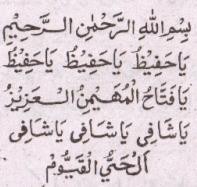 بِسْمِ اللهِ الرَّحْمٰنِ الرَّحِيْمِ
يَاحَفِيْظُ يَاحَفِيْظُ يَاحَفِيْظُ
يَافَتَّاحُ الْمُهَيْمِنُ الْعَزِيْزُ
يَاشَافِى يَاشَافِى يَاشَافِى
اَلْحَيُّ الْقَيُّوْمُ